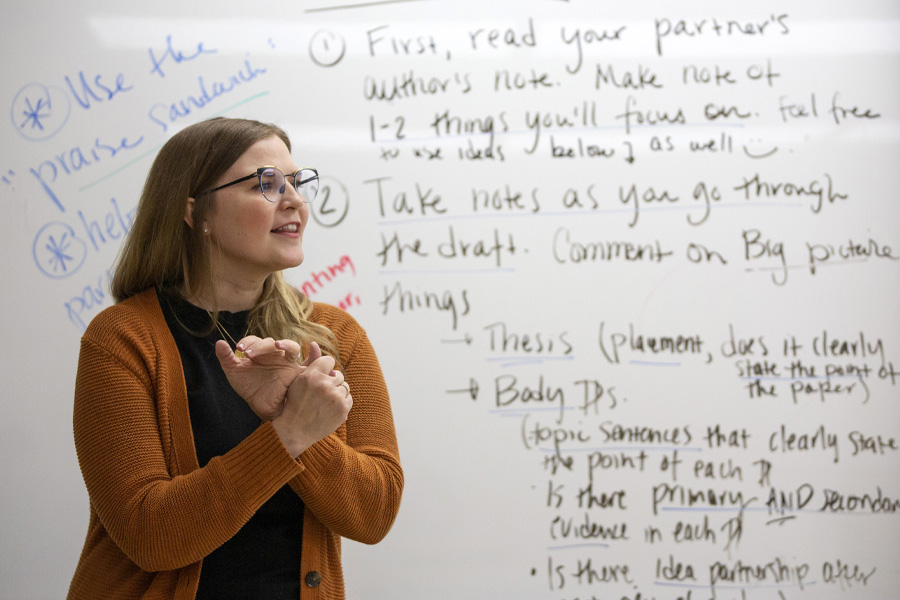 Use the
"praise sandwich"
① First, read your partner's
author's note. Make note of
1-2 things you'll focus on. Feel free
to use ideas below ↓ as well
② Take notes as you go through
the draft. Comment on Big picture
things
→ Thesis (placement, does it clearly
state the point of
the paper)
→ Body ¶s.
(topic sentences that clearly state
the point of each ¶
· Is there primary AND secondary
evidence in each ¶
· Is there Idea partnership after